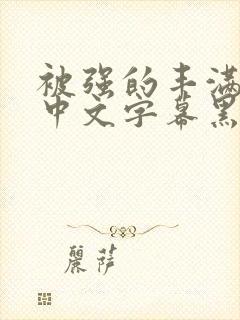 被强的丰满
中文字幕黑
麗萨